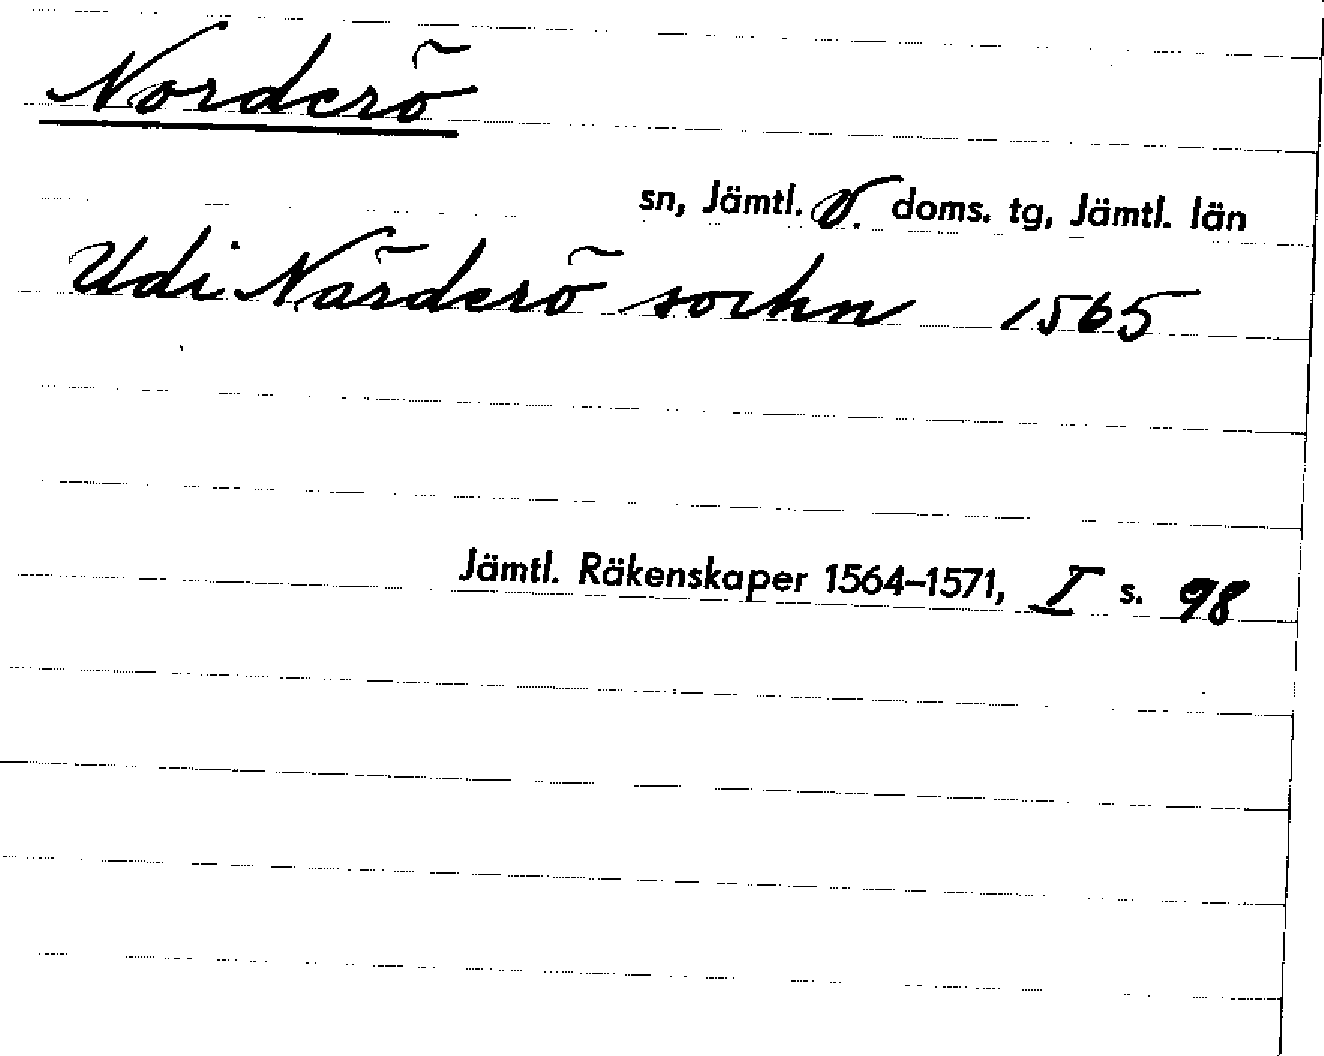 Norderö
sn, Jämtl. V. doms. tg, Jämtl. län
Udi Närderö sochn 1565
Jämtl. Räkenskaper 1564–1571, I s. 98